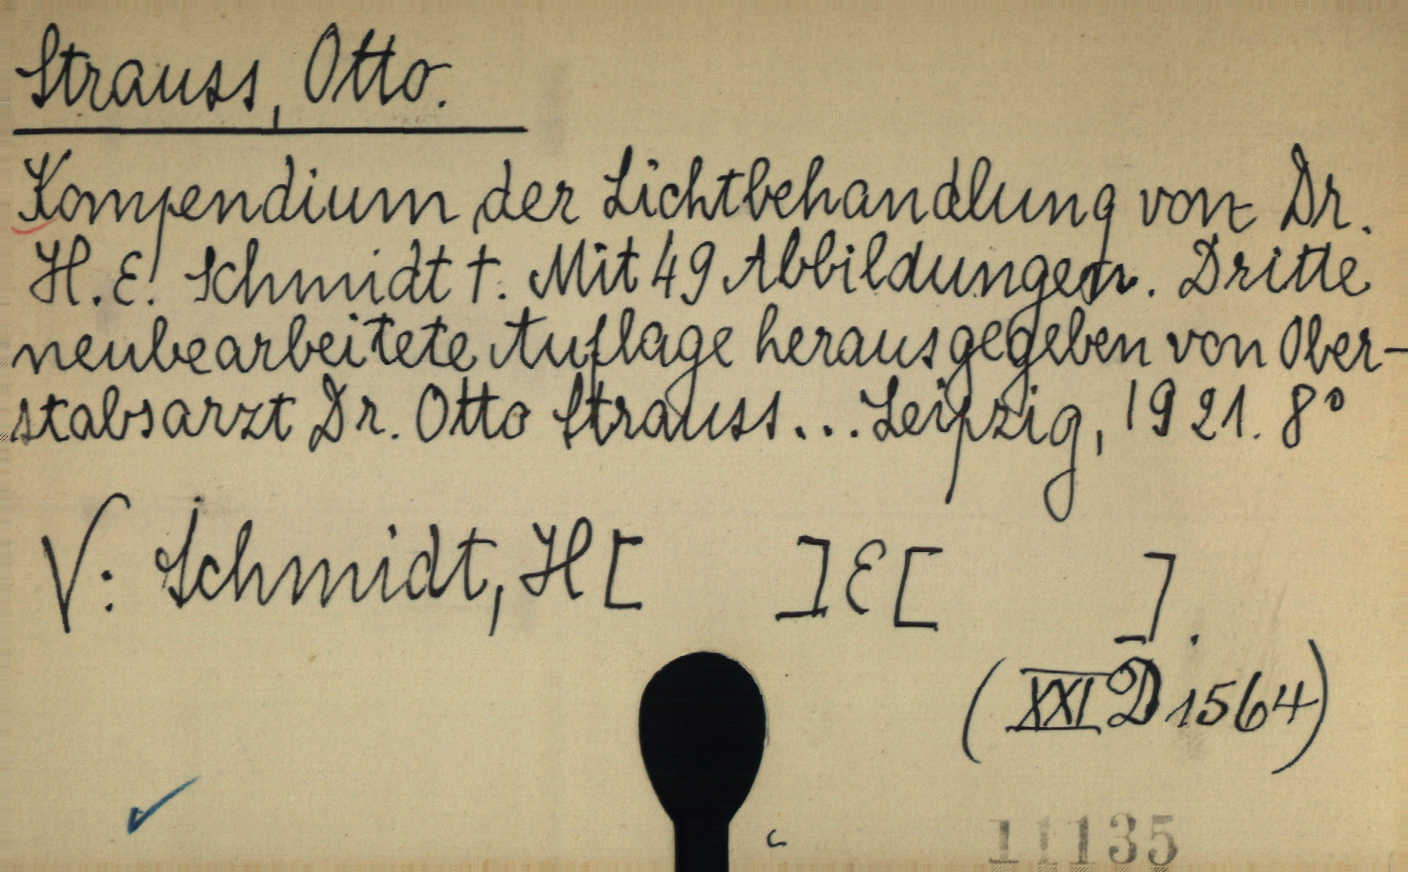 Strauss, Otto.
Kompendium der Lichtbehandlung von Dr.
H. E. Schmidt †. Mit 49 Abbildungen. Dritte
neubearbeitete Auflage herausgegeben von Ober-
stabsarzt Dr. Otto Strauss... Leipzig, 1921. 8°
V: Schmidt, H [ ] E [ ].
(XXI D 1564)
11135